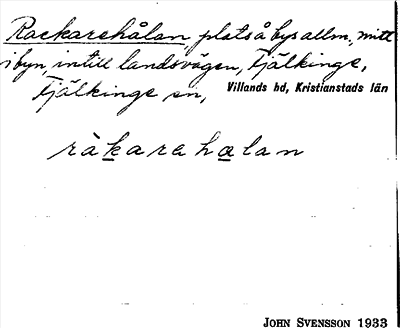 Rackarehålan plats å bys allm., mitt
i byn, intill landsvägen, Fjälkinge,
Fjälkinge sn, Villands hd, Kristianstads län
ràkarehalan
JOHN SVENSSON 1933